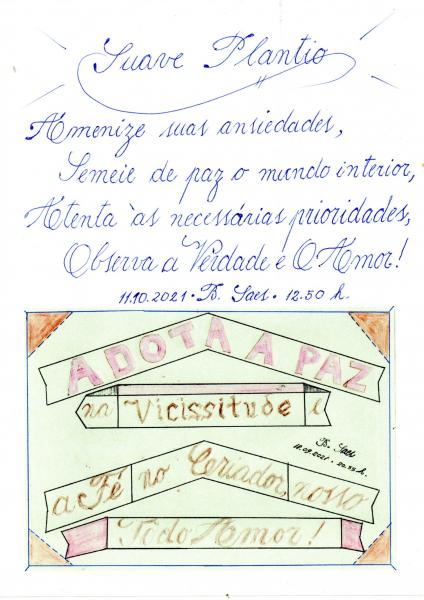 Suave Plantio
Amenize suas ansiedades,
Semeie de paz o mundo interior,
Atenta às necessárias prioridades,
Observa a Verdade e O Amor!
11.10.2021 • B. Saes • 12.50 h.
ADOTA A PAZ
na Vicissitude e
B. Saes
a Fé no Criador, nosso
Tido Amor!